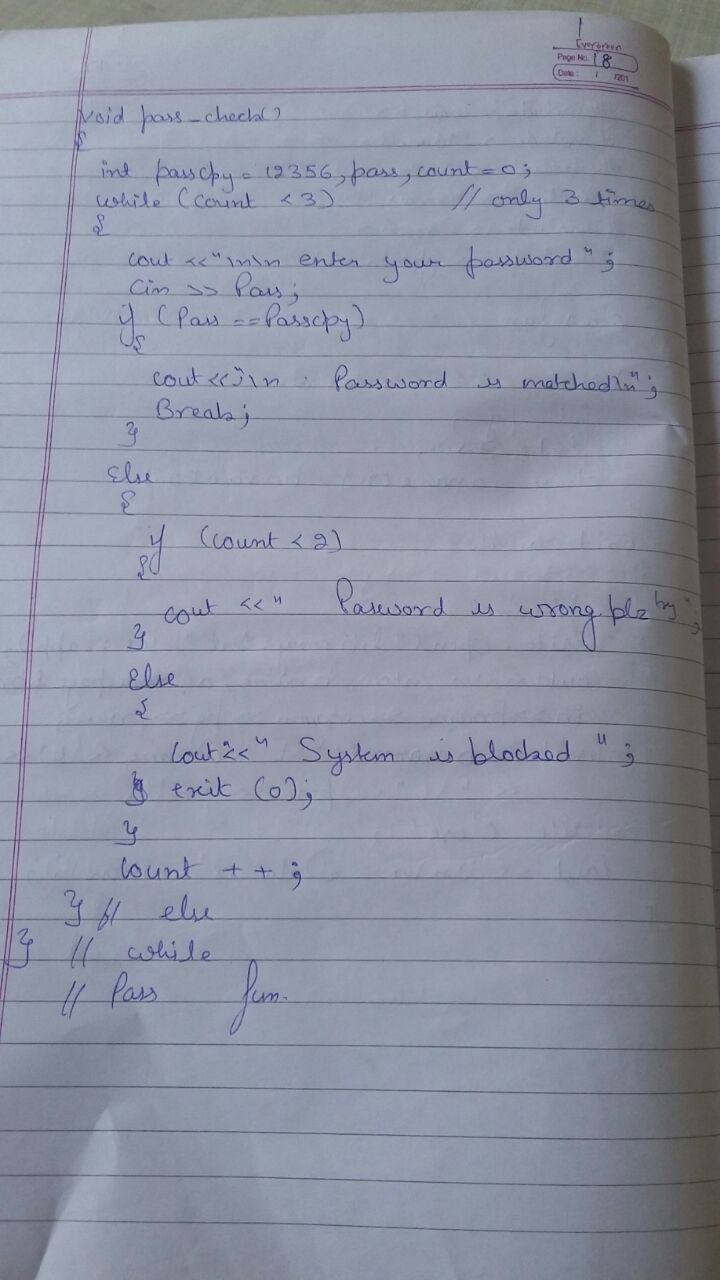 Evergreen
Page No. 18
Date: / /201
void pass_check()
{
int passcpy = 12356, pass, count = 0;
while (count < 3) // only 3 times
{
cout << "\n\n enter your password";
cin >> Pass;
if (Pass == Passcpy)
{
cout << "\n Password is matched\n";
Break;
}
Else
{
if (count < 2)
{
cout << " Password is wrong plz try";
}
Else
{
cout << " System is blocked ";
exit (0);
}
count ++;
} // else
} // while
// Pass fun.